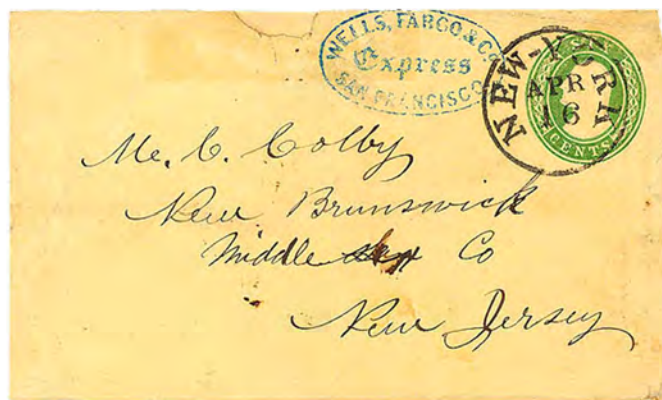 WELLS, FARGO & Co
Express
SAN FRANCISCO
NEW-YORK
APR
16
SIX
CENTS
Me. C. Colby
New Brunswick
Middlesex Co
New Jersey